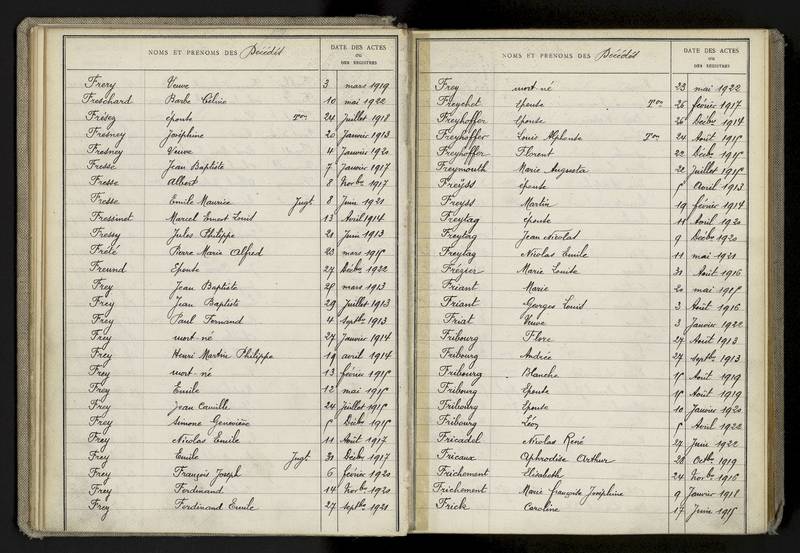 NOMS ET PRENOMS DES Décédés
DATE DES ACTES
OU
DES REGISTRES
Frery Veuve 3 mars 1919
Freschard Barbe Céline 10 mai 1922
Frésez épouse Ton 24 Juillet 1918
Fresney Joséphine 20 Janvier 1913
Fresney Veuve 4 Janvier 1920
Fresse Jean Baptiste 7 Janvier 1917
Fresse Albert 8 Novbre 1917
Fresse Emile Maurice Jugt 8 Juin 1921
Fressinet Marcel Ernest Louis 13 Avril 1914
Fressy Jules Philippe 21 Juin 1913
Frété Pierre Marie Alfred 23 mars 1915
Freund Epouse 27 Décbre 1922
Frey Jean Baptiste 25 mars 1913
Frey Jean Baptiste 29 Juillet 1913
Frey Paul Fernand 4 septbre 1913
Frey mort-né 27 Janvier 1914
Frey Henri Martin Philippe 19 avril 1914
Frey mort-né 13 février 1915
Frey Emile 12 mai 1915
Frey Jean Camille 24 Juillet 1915
Frey Simone Geneviève 5 Décbre 1915
Frey Nicolas Emile 11 Août 1917
Frey Emile Jugt 31 Décbre 1917
Frey François Joseph 6 février 1920
Frey Ferdinand 14 Novbre 1920
Frey Ferdinand Emile 27 septbre 1921
NOMS ET PRENOMS DES Décédés
DATE DES ACTES
OU
DES REGISTRES
Frey mort-né 23 mai 1922
Freychet épouse Ton 26 février 1917
Freyhoffer épouse 26 Décbre 1914
Freyhoffer Louis Alphonse Ton 24 Août 1915
Freyhoffer Florent 22 Décbre 1915
Freymouth Marie Augusta 22 Juillet 1915
Freÿss épouse 5 Avril 1913
Freyss Martin 19 février 1914
Freytag épouse 11 Avril 1920
Freytag Jean Nicolas 9 Décbre 1920
Freytag Nicolas Emile 11 mai 1921
Frézier Marie Louise 31 Août 1916
Friant Marie 20 mai 1915
Friant Georges Louis 3 Août 1916
Friat Veuve 3 Janvier 1922
Fribourg Flore 27 Août 1913
Fribourg Andrée 27 septbre 1913
Fribourg Blanche 15 Août 1919
Fribourg Epouse 15 Août 1919
Fribourg Epouse 10 Janvier 1920
Fribourg Léon 5 Avril 1922
Fricadel Nicolas René 27 Juin 1922
Fricaux Aphrodise Arthur 28 Octbre 1919
Frichement Elisabeth 24 Novbre 1916
Frichement Marie françoise Joséphine 9 Janvier 1918
Frick Caroline 17 Juin 1915